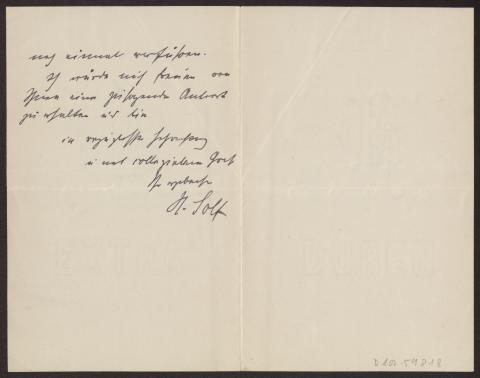 noch einmal
Ich würde mich freuen von
Ihnen eine zusagende Antwort
zu erhalten und bin
in vorzüglicher Hochachtung
u mit collegialem Gruß
Ihr ergebenster
H. Solf
D 202-59818